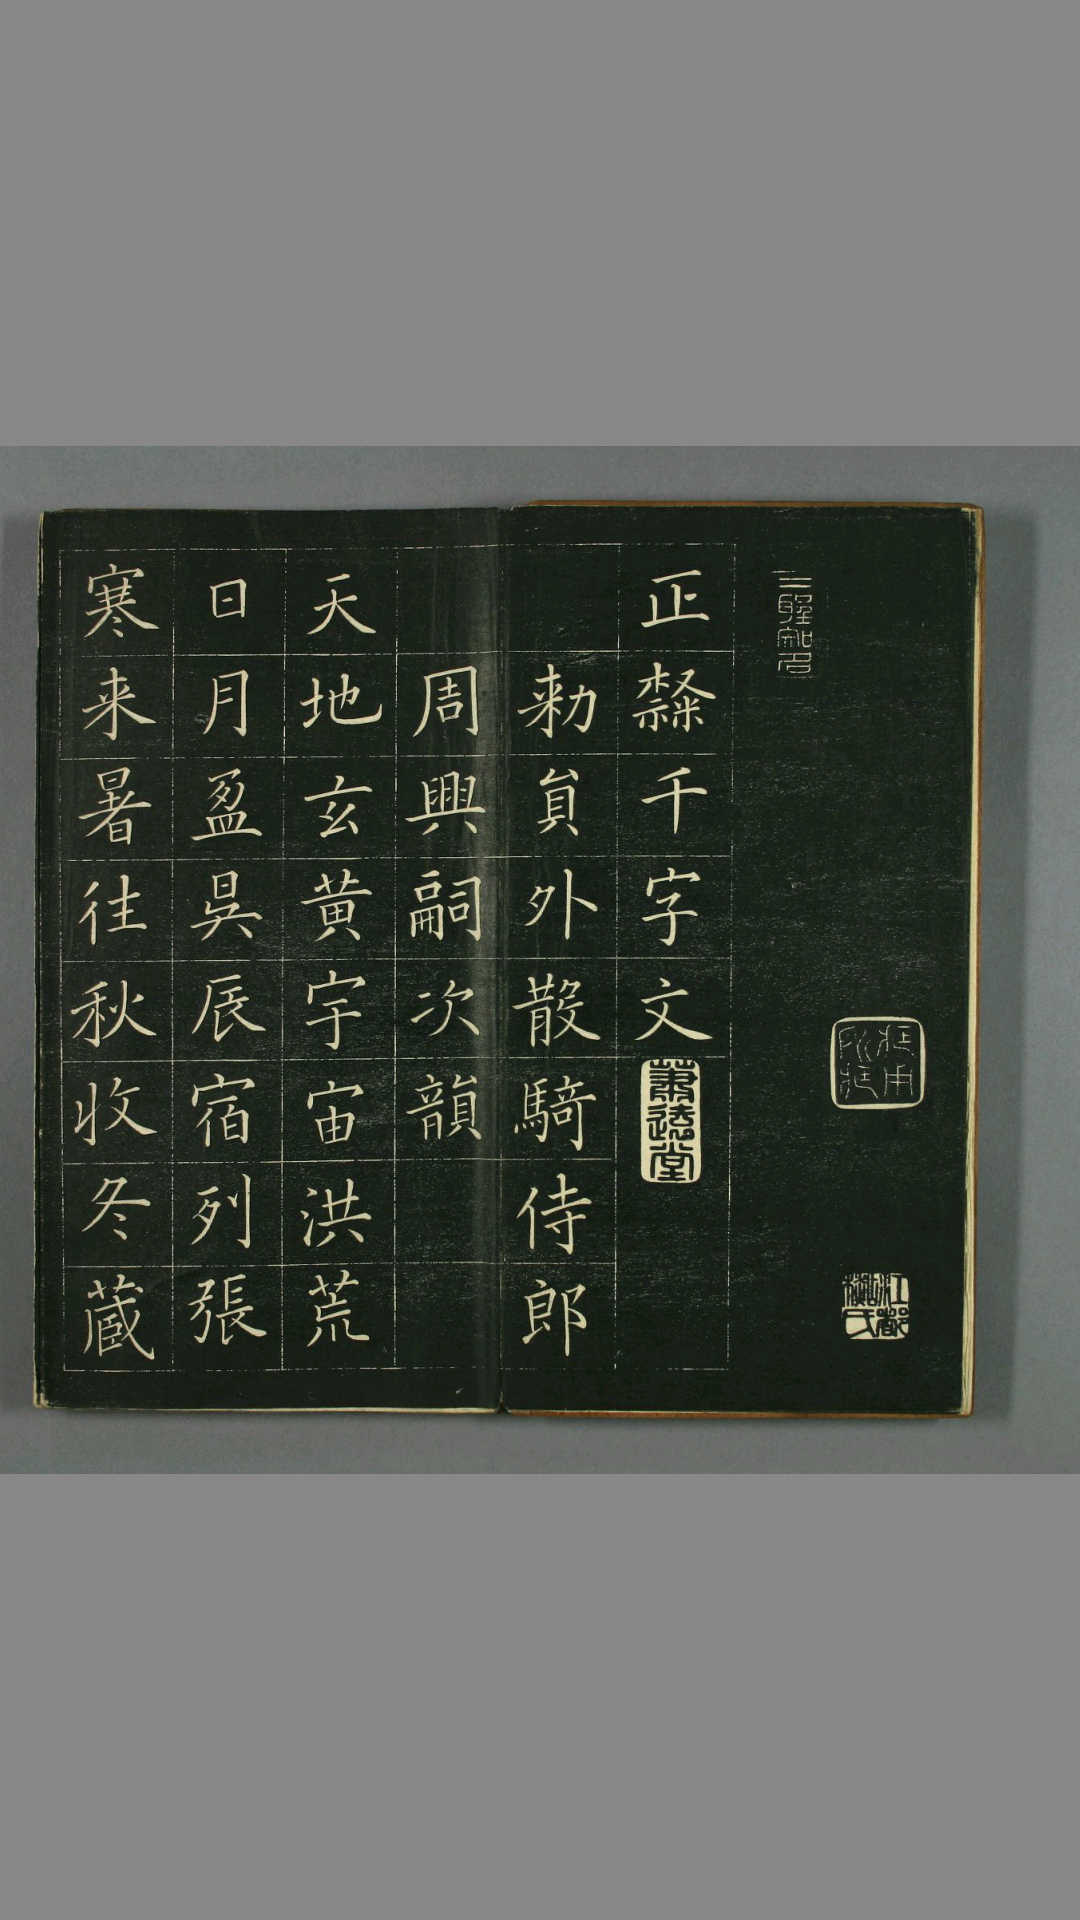 正隸千字文
蕭遠堂
勑員外散騎侍郎
周興嗣次韻
天地玄黃宇宙洪荒
日月盈昃辰宿列張
寒来暑往秋收冬蔵